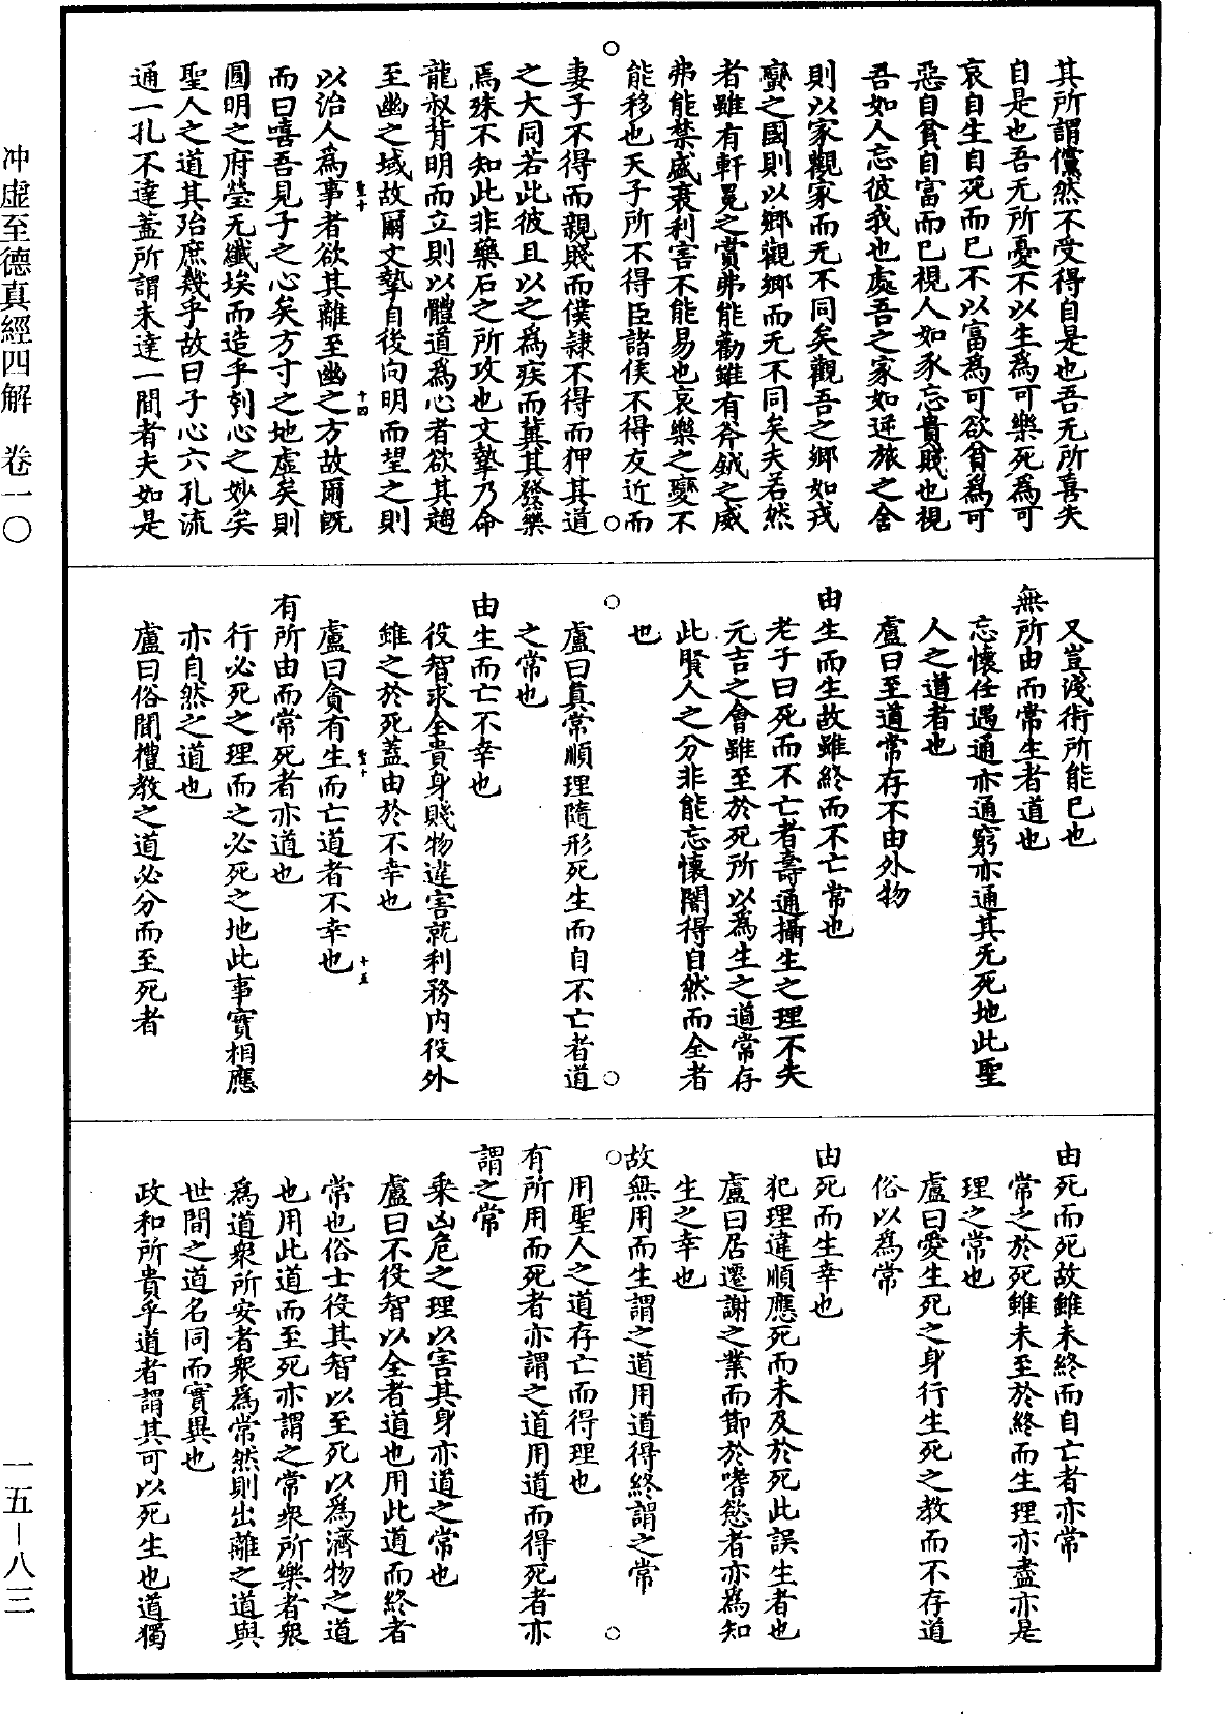 其所謂儻然不受得自是也吾无所喜失
自是也吾无所憂不以生爲可樂死爲可
哀自生自死而已不以富爲可欲貧爲可
惡自貧自富而已視人如豕忘貴賤也視
吾如人忘彼我也處吾之家如逆旅之舍
則以家觀家而无不同矣觀吾之鄉如戎
蠻之國則以鄉觀鄉而无不同矣夫若然
者雖有軒冕之賞弗能勸雖有斧鉞之威
弗能禁盛衰利害不能易也哀樂之變不
能移也天子所不得臣諸侯不得友近而
妻子不得而親賤而僕隸不得而狎其道
之大同若此彼且以之爲疾而冀其發藥
焉殊不知此非藥石之所攻也文摯乃命
龍叔背明而立則以體道爲心者欲其趨
至幽之域故爾文摯自後向明而望之則
以治人爲事者欲其離至幽之方故爾既
而曰嘻吾見子之心矣方寸之地虛矣則
圓明之府瑩无纖埃而造乎刳心之妙矣
聖人之道其殆庶幾乎故曰子心六孔流
通一孔不達蓋所謂未達一間者夫如是
聖十
十四
又豈淺術所能已也
無所由而常生者道也
忘懷任遇通亦通窮亦通其无死地此聖
人之道者也
盧曰至道常存不由外物
由生而生故雖終而不亡常也
老子曰死而不亡者壽通攝生之理不失
元吉之會雖至於死所以爲生之道常存
此賢人之分非能忘懷闇得自然而全者
也
盧曰真常順理隨形死生而自不亡者道
之常也
由生而亡不幸也
役智求全貴身賤物違害就利務内役外
雖之於死蓋由於不幸也
盧曰貪有生而亡道者不幸也
聖十
十五
有所由而常死者亦道也
行必死之理而之必死之地此事實相應
亦自然之道也
盧曰俗聞禮教之道必分而至死者
由死而死故雖未終而自亡者亦常
常之於死雖未至於終而生理亦盡亦是
理之常也
盧曰愛生死之身行生死之教而不存道
俗以爲常
由死而生幸也
犯理違順應死而未及於死此誤生者也
盧曰居遷謝之業而節於嗜慾者亦爲知
生之幸也
故無用而生謂之道用道得終謂之常
用聖人之道存亡而得理也
有所用而死者亦謂之道用道而得死者亦
謂之常
乘凶危之理以害其身亦道之常也
盧曰不役智以全者道也用此道而終者
常也俗士役其智以至死以爲濟物之道
也用此道而至死亦謂之常衆所樂者衆
爲道衆所安者衆爲常然則出離之道與
世間之道名同而實異也
政和所貴乎道者謂其可以死生也道獨
冲虛至德真經四解 卷一〇
一五—八三